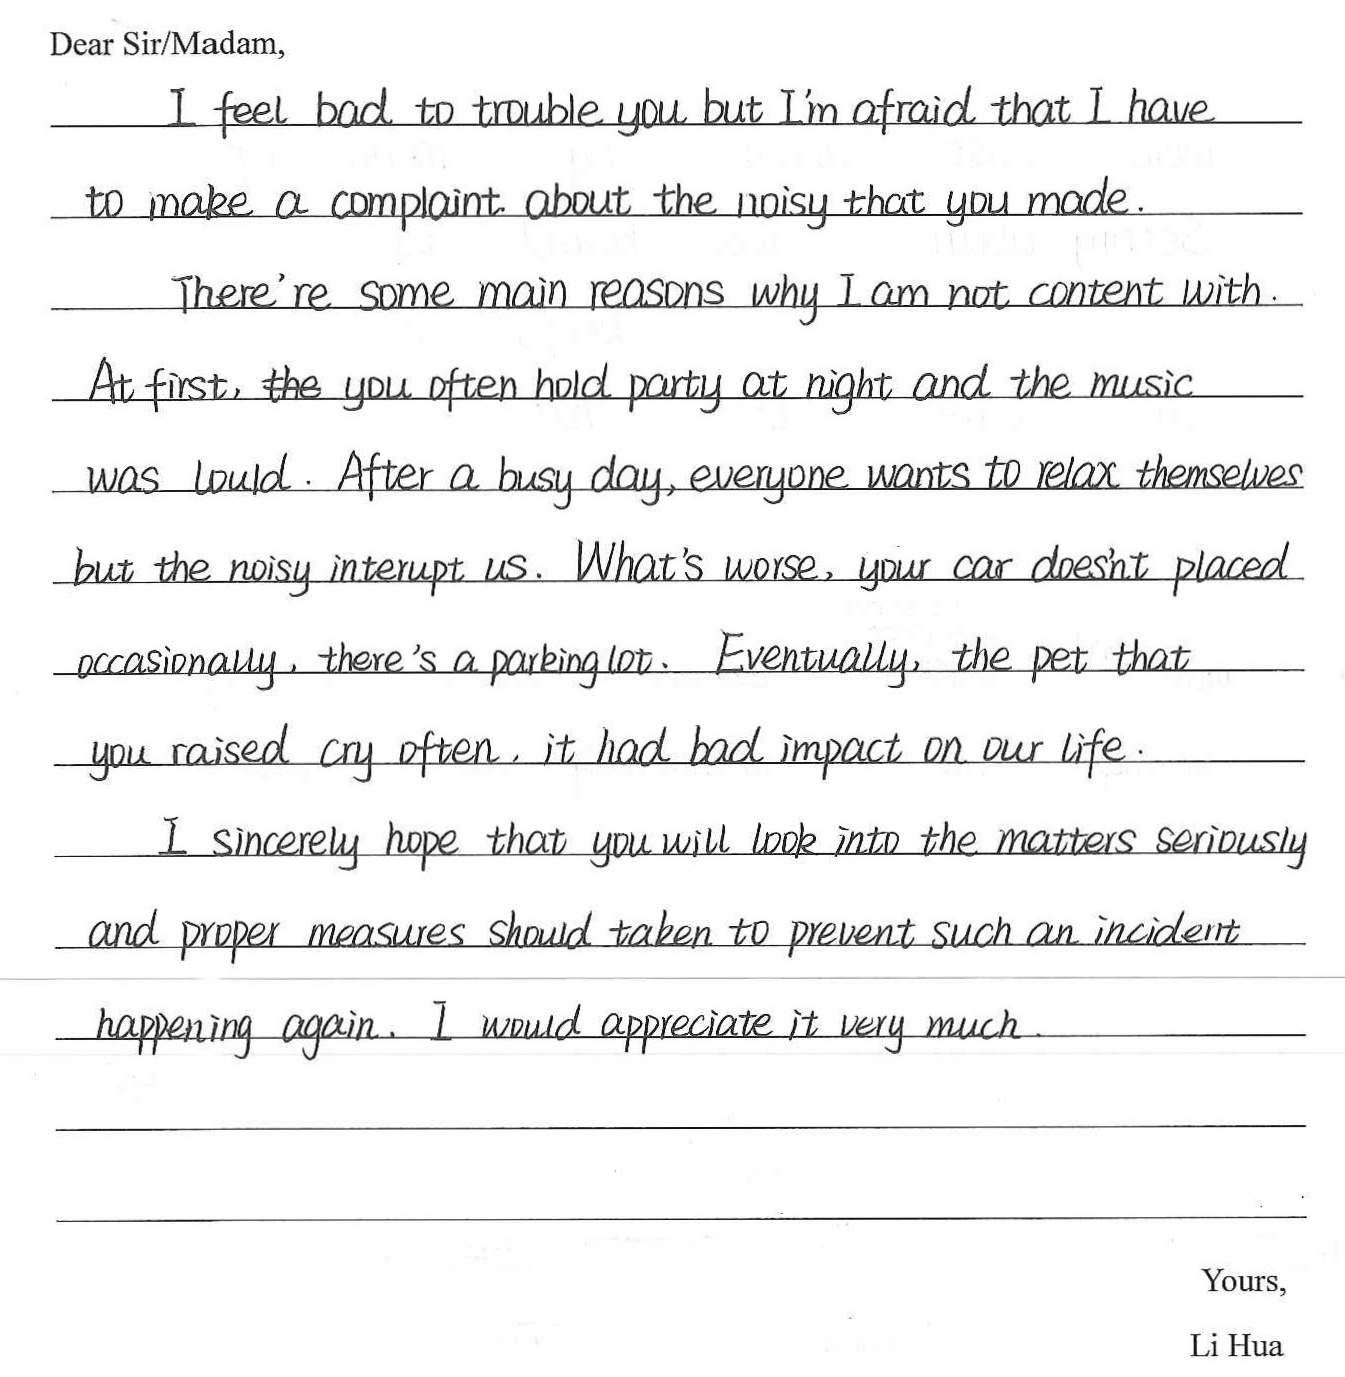 Dear Sir/Madam,
I feel bad to trouble you but I'm afraid that I have
to make a complaint about the noisy that you made.
There're some main reasons why I am not content with.
At first, the you often hold party at night and the music
was lould. After a busy day, everyone wants to relax themselves
but the noisy interupt us. What's worse, your car does'nt placed
occasionally, there's a parking lot. Eventually, the pet that
you raised cry often, it had bad impact on our life.
I sincerely hope that you will look into the matters seriously
and proper measures should taken to prevent such an incident
happening again. I would appreciate it very much.
Yours,
Li Hua